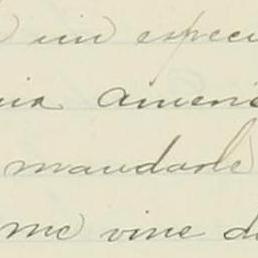 un especi
nia ameri
mandarle
me vine de